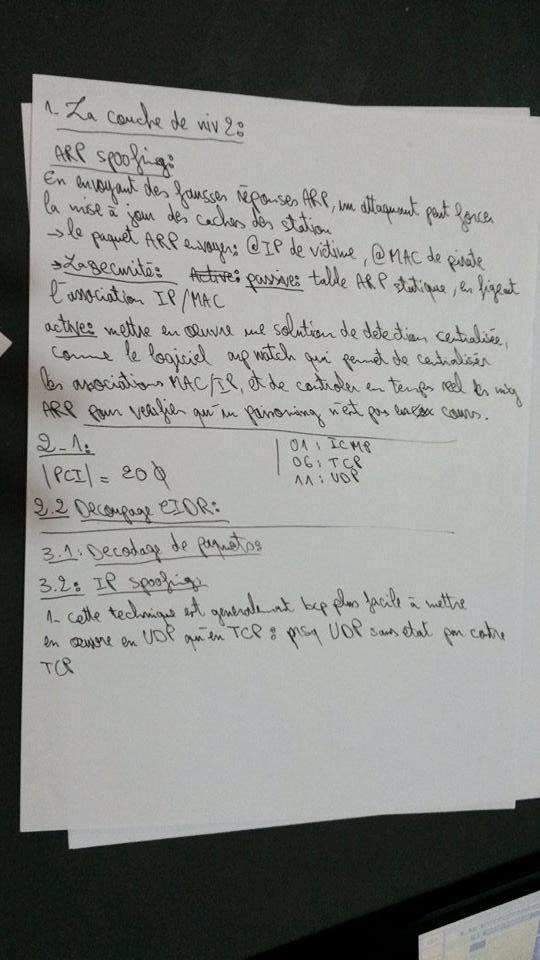 1- La couche de niv 2:
ARP spoofing:
En envoyant des fausses réponses ARP, un attaquant peut forcer
la mise à jour des caches des station
→ le paquet ARP envoyer: @IP de victime, @MAC de pirate
→ La securité: Active: passive: table ARP statique, en figeant
l'association IP/MAC
active: mettre en œuvre une solution de detection centralisée,
comme le logiciel arpwatch qui permet de centraliser
les associations MAC/IP, et de controler en temps réel les msg
ARP pour verifier qu'un poisoning n'est pas en cours.
2-1:
|PCI| = 20
01: ICMP
06: TCP
11: UDP
2.2 Decoupage CIDR:
3.1: Decodage de paquets:
3.2: IP spoofing:
1- cette technique est generalement bcp plus facile à mettre
en œuvre en UDP qu'en TCP: psq UDP sans état par contre
TCP